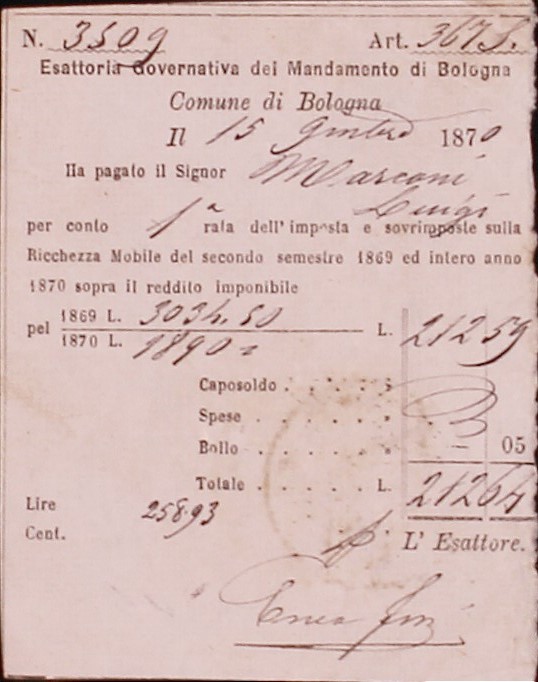 N. 3509 Art. 3675.
Esattoria Governativa del Mandamento di Bologna
Comune di Bologna
Il 15 9mbre 1870
Ha pagato il Signor Marconi
Luigi
per conto 1ª rata dell' imposta e sovrimposte sulla
Ricchezza Mobile del secondo semestre 1869 ed intero anno
1870 sopra il reddito imponibile
1869 L. 3034.50
pel L. 212 59
1870 L. 1890
Caposoldo . . . . "
Spese . . . . . "
Bollo . . . . . " — 05
Totale . . . . . L. 212 64
Lire 258.93
Cent.
L' Esattore.